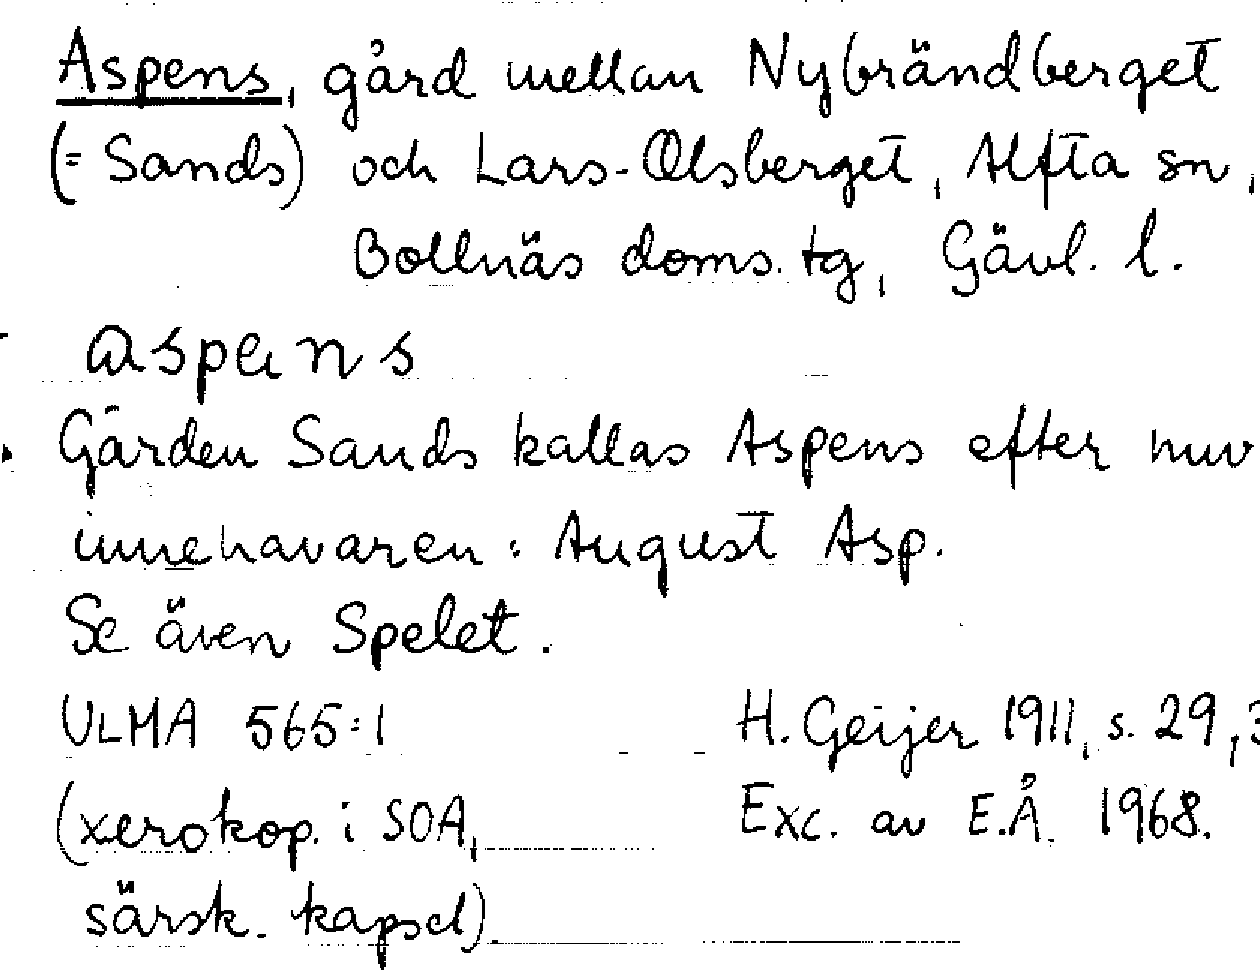 Aspens, gård mellan Nybrändberget
(= Sands) och Lars-Olsberget, Alfta sn,
Bollnäs doms. tg, Gävl. l.
aspens
Gården Sands kallas Aspens efter nuv
innehavaren: August Asp.
Se även Spelet.
ULMA 565:1 H. Geijer 1911, s. 29,3
(xerokop. i SOA, Exc. av E.Å. 1968.
särsk. kapsel).